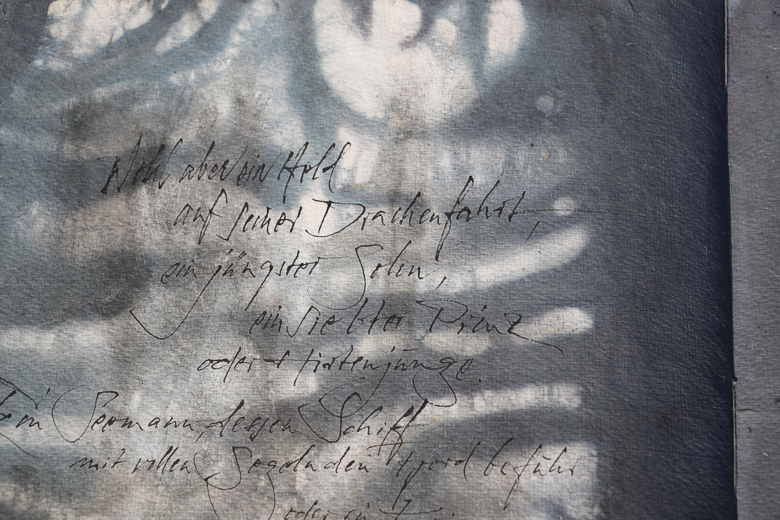 Wohl aber ein Held
auf seiner Drachenfahrt,
ein jüngster Sohn,
ein siebter Prinz
oder Hirtenjunge.
Ein Seemann, dessen Schiff
mit vollen Segeln den Fjord befuhr
oder ein